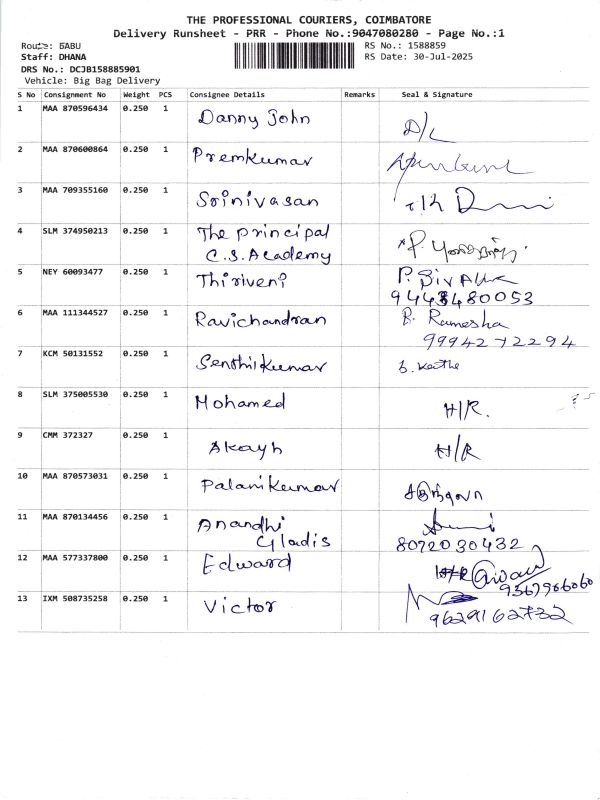 THE PROFESSIONAL COURIERS, COIMBATORE
Delivery Runsheet - PRR - Phone No.:9047080280 - Page No.:1
Route: BABU
RS No.: 1588859
Staff: DHANA
RS Date: 30-Jul-2025
DRS No.: DCJB158885901
Vehicle: Big Bag Delivery
S No Consignment No Weight PCS Consignee Details Remarks Seal & Signature
1 MAA 870596434 0.250 1 Danny John D/L
2 MAA 870600864 0.250 1 Premkumar
3 MAA 709355160 0.250 1 Srinivasan
4 SLM 374950213 0.250 1 The principal
C.S. Academy
5 NEY 60093477 0.250 1 Thiriveni P.
9443480053
6 MAA 111344527 0.250 1 Ravichandran B. Ramesha
99942 72294
7 KCM 50131552 0.250 1 Senthilkumar
8 SLM 375005530 0.250 1 Mohamed H/R.
9 CMM 372327 0.250 1 Akaysh H/R
10 MAA 870573031 0.250 1 Palanikumar
11 MAA 870134456 0.250 1 Anandhi
Gladis 8072030432
12 MAA 577337800 0.250 1 Edward H/R
9367906060
13 IXM 508735258 0.250 1 Victor
9629162732